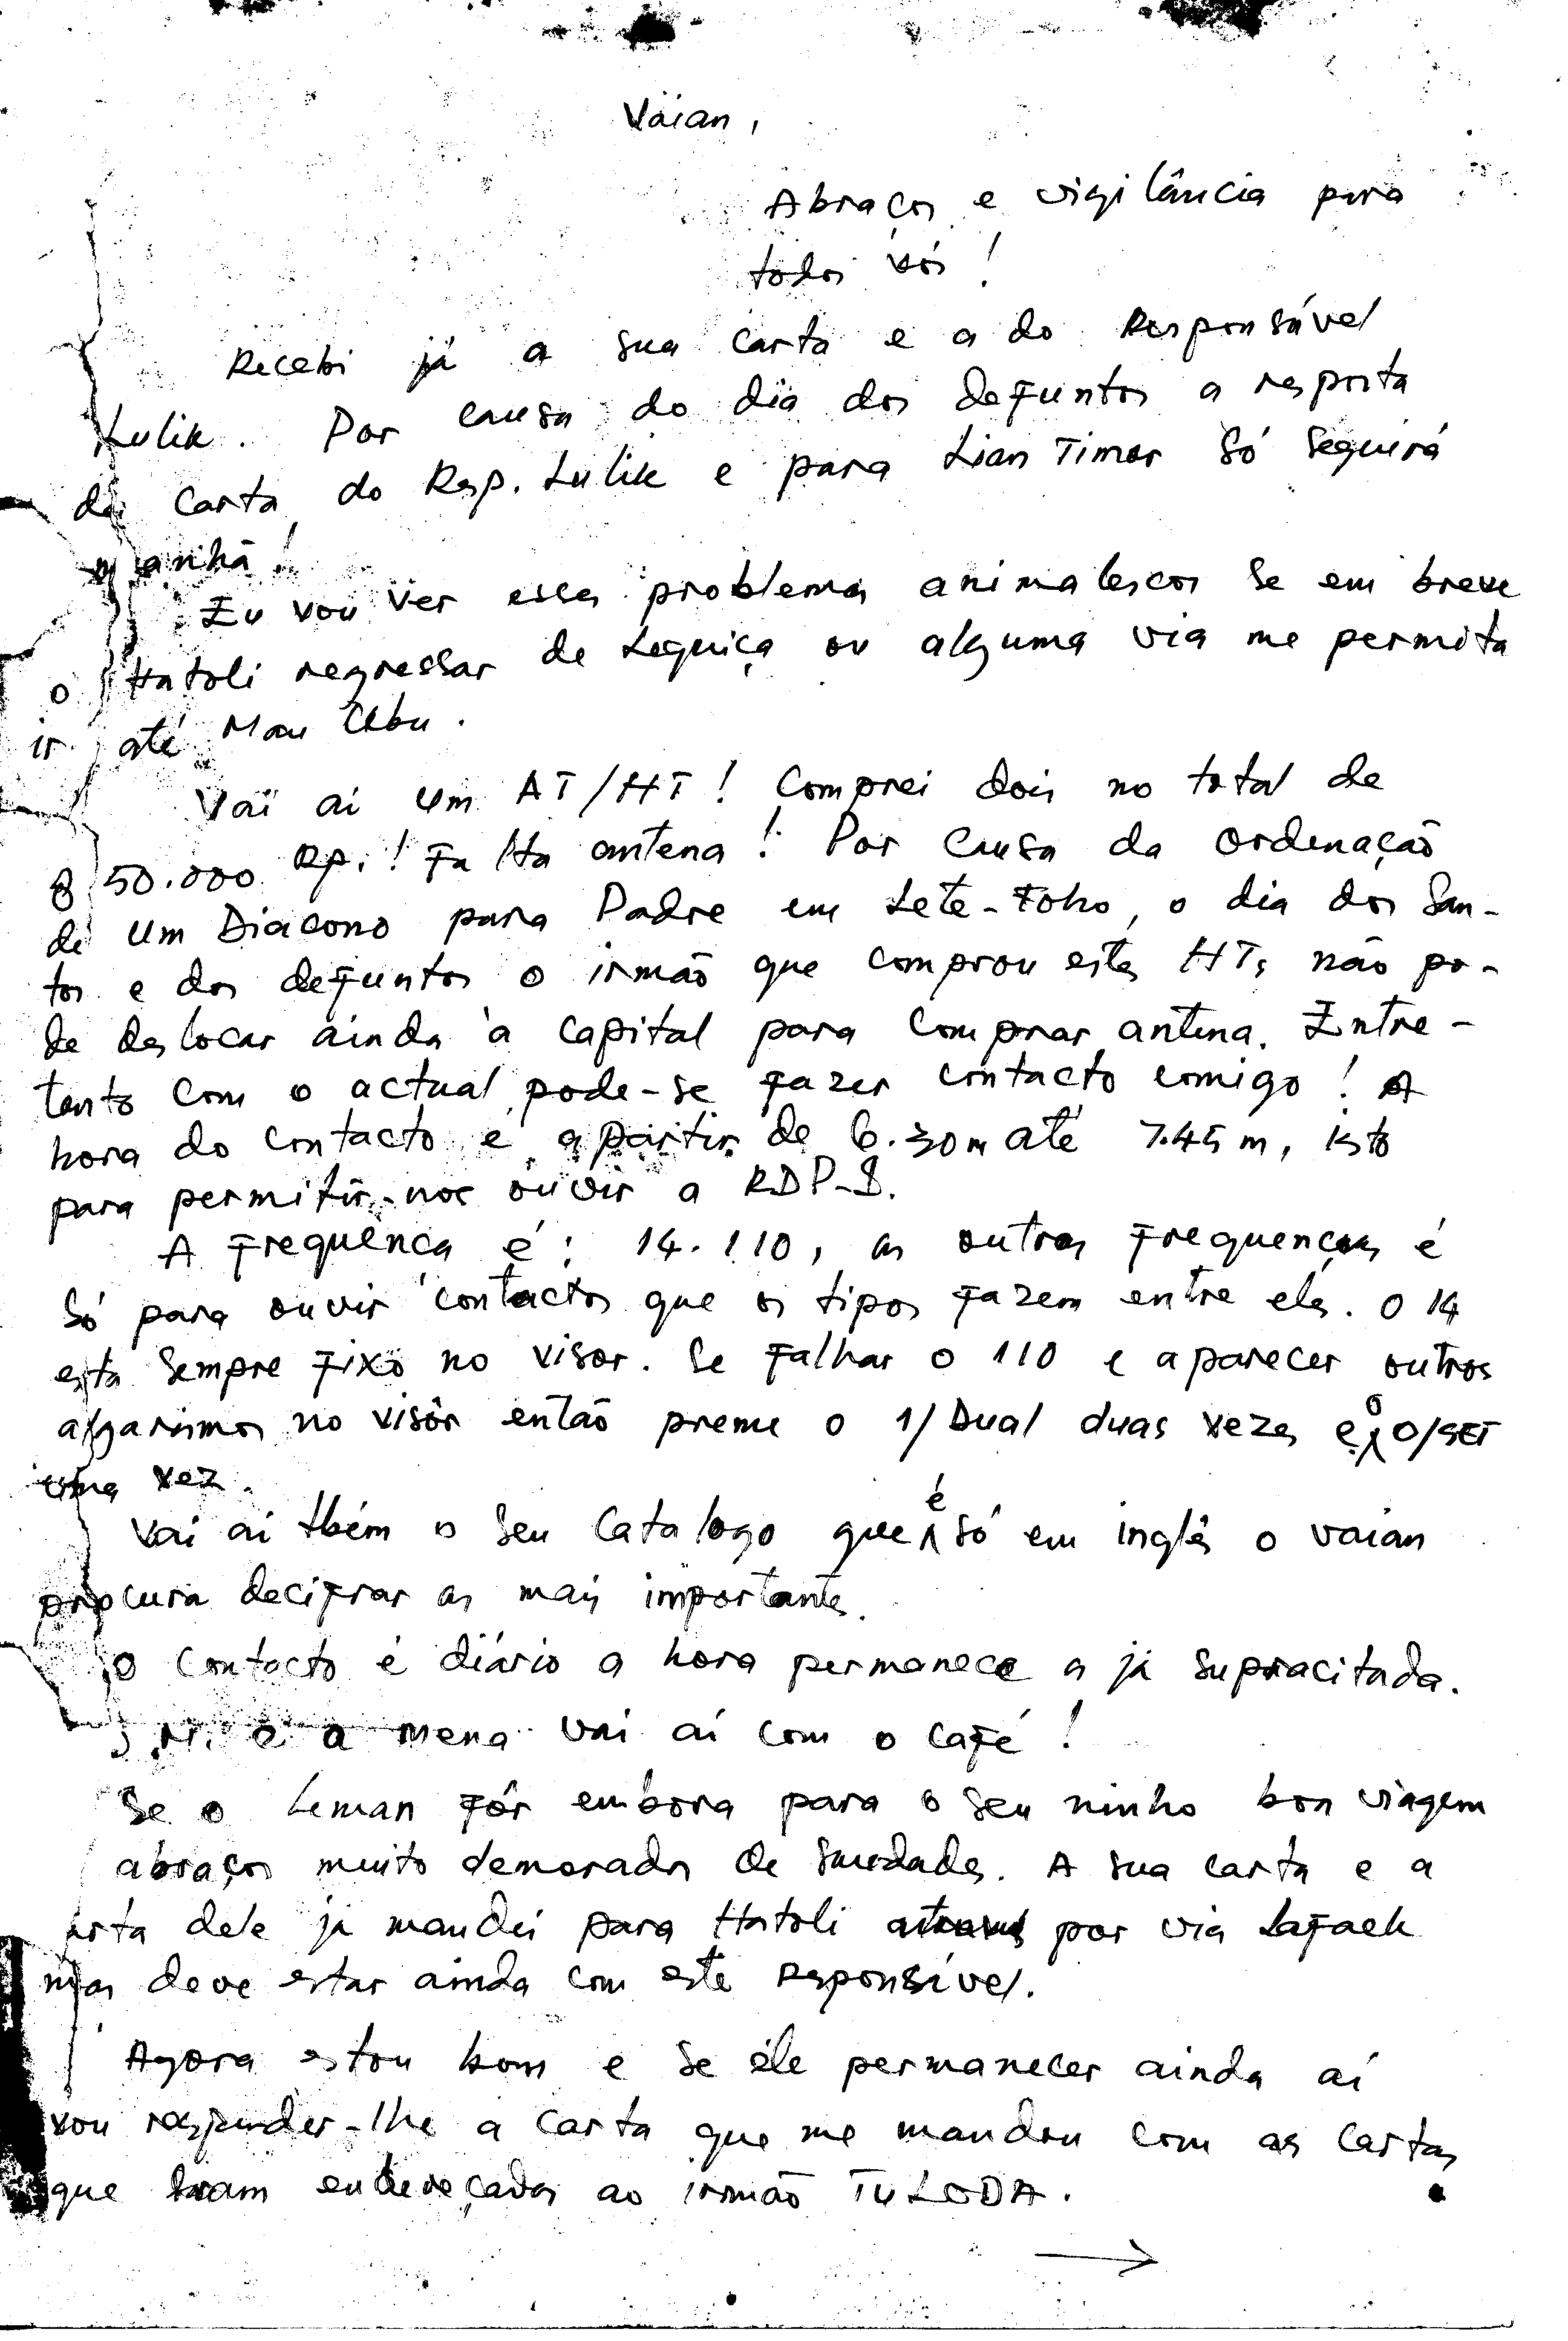 Vaian,
Abraços e vigilância para
todos vós!
Recebi já a sua carta e a do Responsável
Lulik. Por causa do dia dos defuntos a resposta
da carta do Resp. Lulik e para Lian Timor só seguirá
manhã!
Eu vou ver esses problemas animalescos se em breve
o Hatoli regressar de Lequiça ou alguma via me permita
ir até Mau Ubu.
Vai aí um AT/HT! Comprei dois no total de
850.000 Rp.! Falta antena! Por causa da ordenação
de um Diacono para Padre em Lete-Foho, o dia dos San-
tos e dos defuntos o irmão que comprou estes HTs não po-
de deslocar ainda à capital para comprar antena. Entre-
tanto com o actual pode-se fazer contacto comigo! A
hora do contacto é apartir de 6.30m até 7.45m, isto
para permitir-nos ouvir a RDP-I.
A frequência é: 14.110, as outras frequencias é
só para ouvir contactos que os tipos fazem entre eles. O 14
está sempre fixo no visor. Se falhar o 110 e aparecer outros
algarismos no visôr então preme o 1/Dual duas vezes e o 0/SET
uma vez.
Vai aí tbém o seu Catalogo que é só em inglês o vaian
procura decifrar as mais importantes.
O contacto é diário a hora permanece a já supracitada.
a mena vai aí com o café!
Se o Leman fôr embora para o seu ninho boa viagem
abraços muito demorados de saudades. A sua carta e a
carta dele já mandei para Hatoli por via Lafaek
mas deve estar ainda com este responsável.
Agora estou bom e se êle permanecer ainda aí
vou responder-lhe a carta que me mandou com as cartas
que eram endereçadas ao irmão TULODA.
→